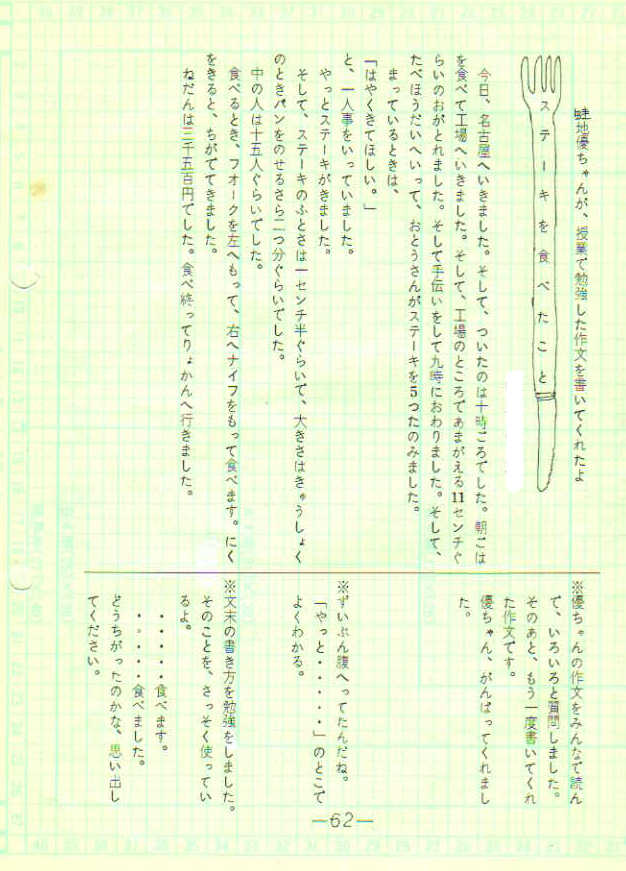 蛙地優ちゃんが、授業で勉強した作文を書いてくれたよ
ステーキを食べたこと
今日、名古屋へいきました。そして、ついたのは十時ごろでした。朝ごは
を食べて工場へいきました。そして、工場のところであまがえる11センチぐ
らいのおがとれました。そして手伝いをして九時におわりました。そして、
たべほうだいへいって、おとうさんがステーキを5つたのみました。
まっているときは、
「はやくきてほしい。」
と、一人事をいっていました。
やっとステーキがきました。
そして、ステーキのふとさは一センチ半ぐらいで、大きさはきゅうしょく
のときパンをのせるさら二つ分ぐらいでした。
中の人は十五人ぐらいでした。
食べるとき、フオークを左へもって、右へナイフをもって食べます。にく
をきると、ちがでてきました。
ねだんは三千五百円でした。食べ終ってりょかんへ行きました。
※優ちゃんの作文をみんなで読ん
で、いろいろと質問しました。
そのあと、もう一度書いてくれ
た作文です。
優ちゃん、がんばってくれまし
た。
※ずいぶん腹へってたんだね。
「やっと・・・・・」のとこで
よくわかる。
※文末の書き方を勉強をしました。
そのことを、さっそく使ってい
るよ。
・・・・・食べます。
・・・・・食べました。
どうちがったのかな、思い出し
てください。
—62—